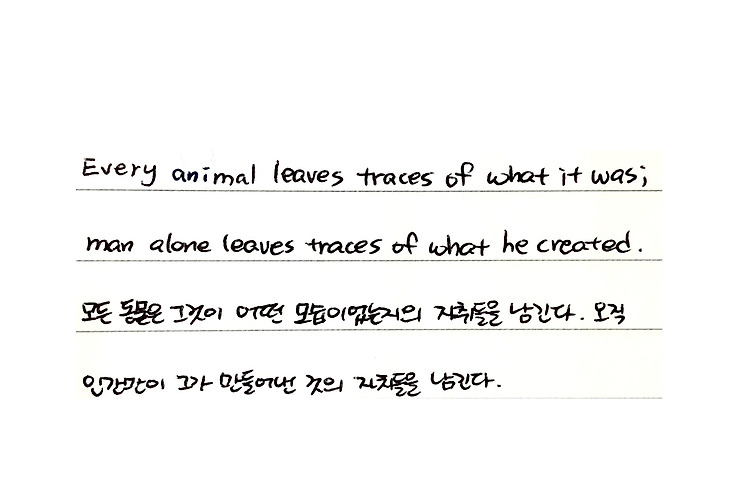 Every animal leaves traces of what it was;
man alone leaves traces of what he created.
모든 동물은 그것이 어떤 모습이었는지의 자취들을 남긴다. 오직
인간만이 그가 만들어낸 것의 자취들을 남긴다.